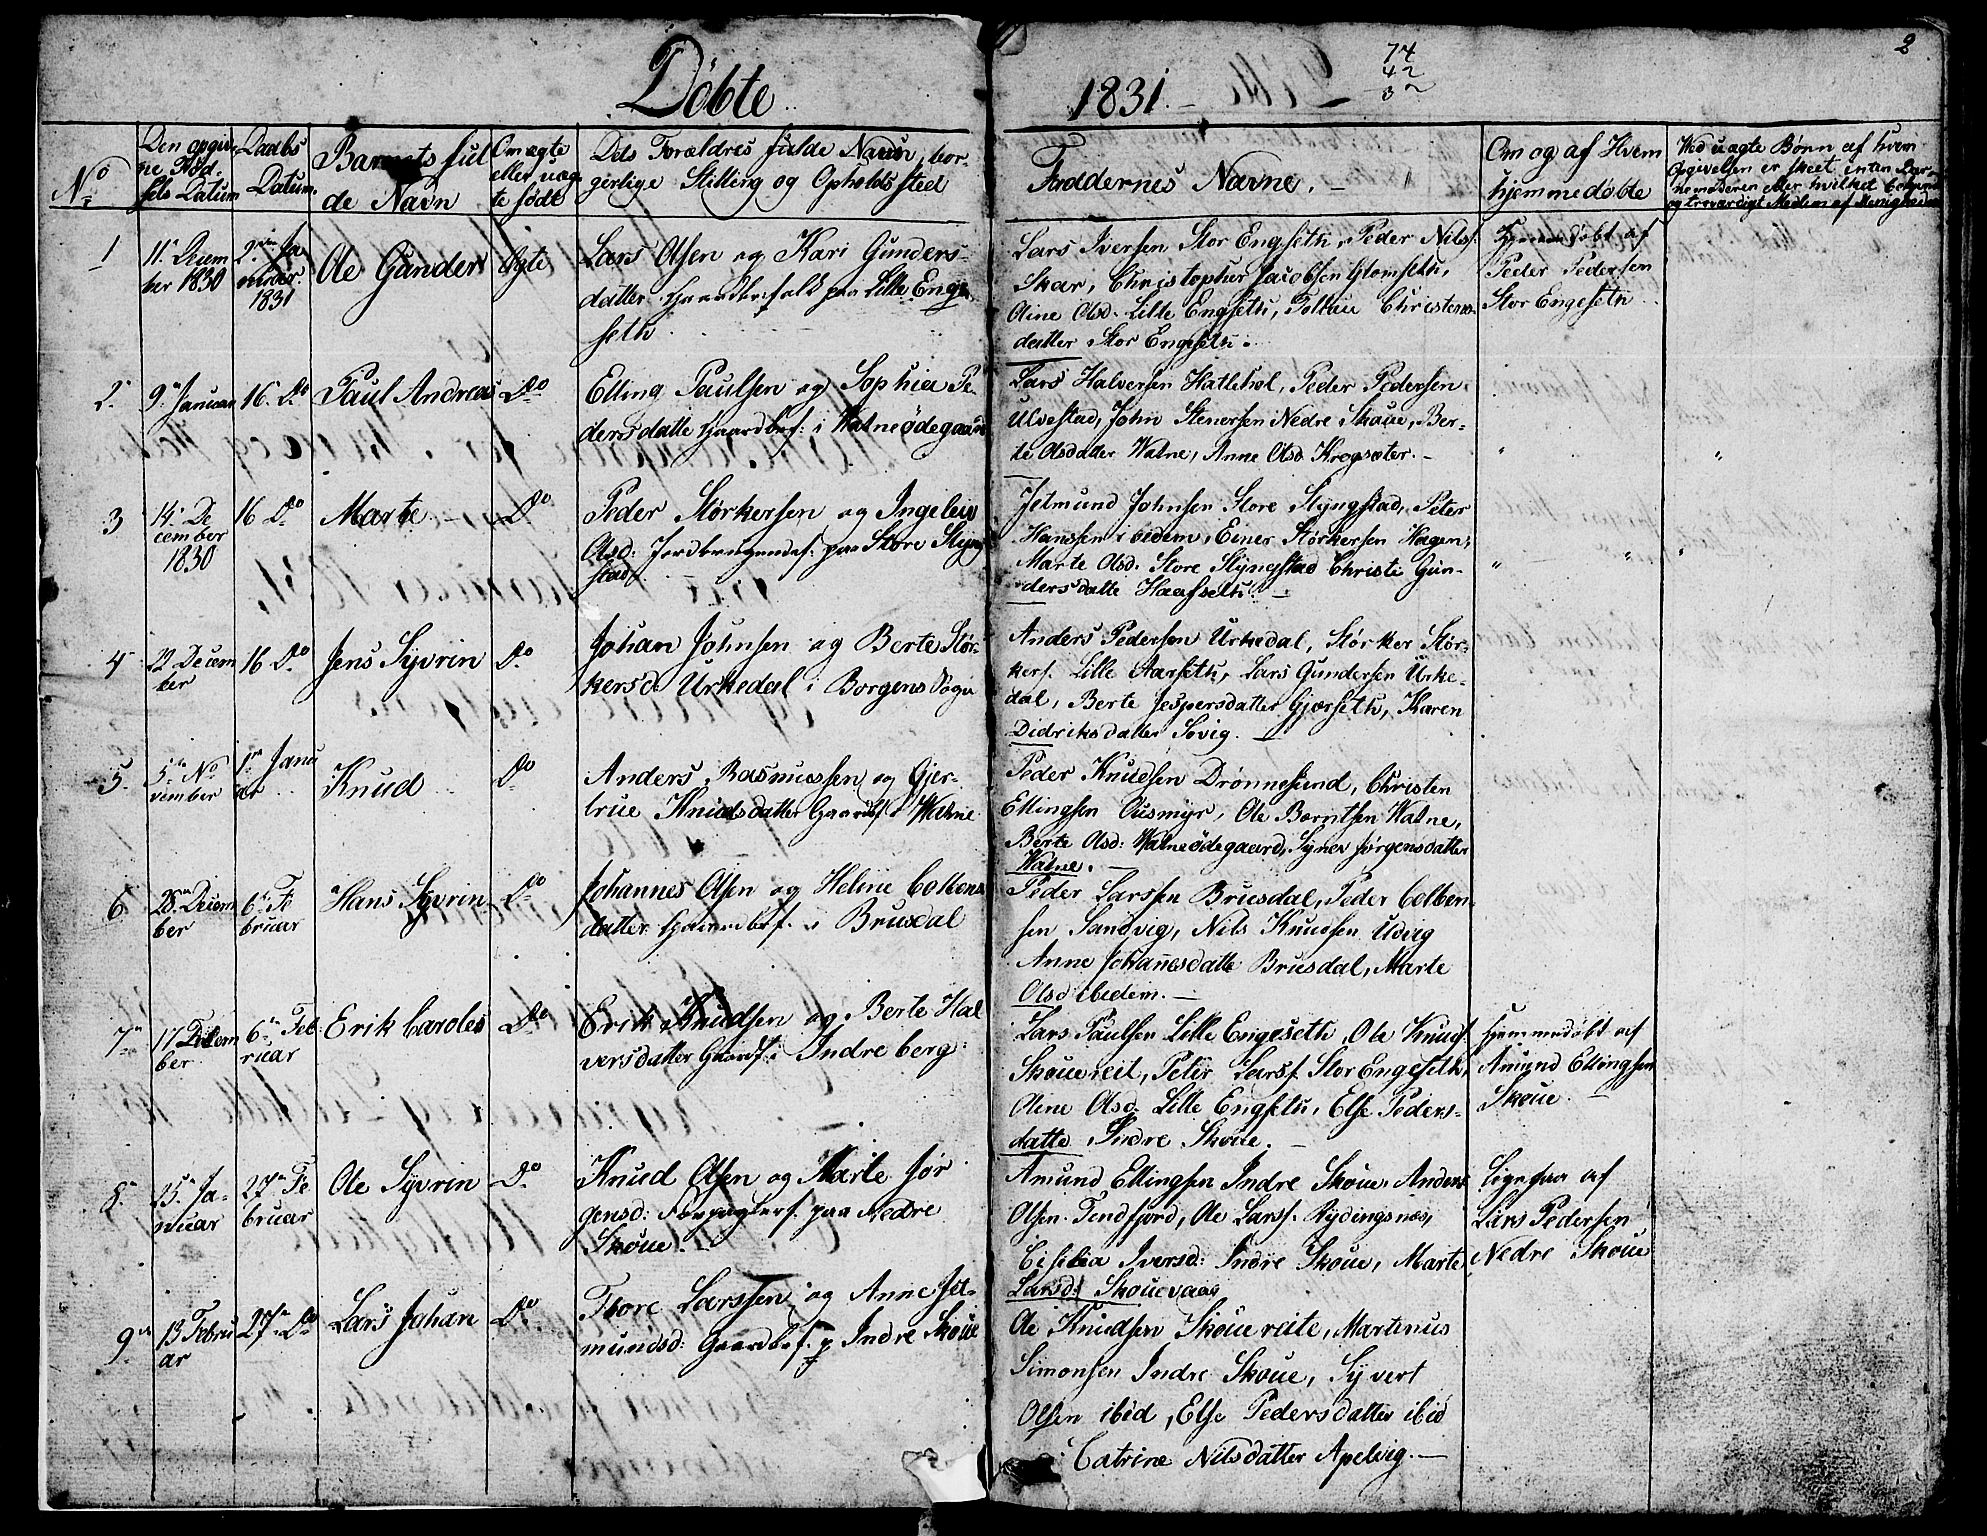 Döbte
1831.
74
42
2
No
Den opgiv-
ne Föd-
sels Datum
Daabs
Datum.
Barnets ful
de Navn
Om ægte
eller uæg
te födt
Dets Forældres fulde Navn, bor-
gerlige Stilling og Opholds sted
Faddernes Navne.
Om og af Hvem
hjemmedöbte
Ved uægte Börn af hvem
Opgivelsen er skeet, enten Bar-
nemoderen eller hvilket bekjendt
og troværdigt Medlem af Menigheden
1
11. Decem
ber 1830
2. Ja
nuar.
1831
Ole Gunder
Ægte
Lars Olsen og Kari Gunders-
datter Gaardbrfolk paa Lille Enge
seth
Lars Iversen Stor Engseth, Peder Nils.
Skar, Christopher Jacobsen Glomseth,
Oline Olsd. Lille Engseth, Christens-
datter Stor Engeseth.
Hjemmedöbt af
Peder Pedersen
Stor Engeseth
2.
9. Januar
16. Do
Paul Andreas
Do
Elling Paulsen og Sophia Pe-
dersdatte Gaardbef: i Watneödegaard
Lars Halversen Hatlehol, Peder Pedersen
Ulvestad, John Stenersen Nedre Skoue, Ber-
te Olsdatter Watne, Anne Olsd. Krogsæter.
3
14. De
cember
1830
16 Do
Marte
Do
Peder Störkersen og Ingeleiv
Olsd: Jordbrugendef: paa Store Slyng
stad
Jetmund Johnsen Store Slyngstad, Peter
Hanssen ibidem, Einer Störkersen Hagen,
Marte Olsd. Store Slyngstad Christi Gun-
dersdatte Haafseth.
4
22 Decem
ber
16 Do
Jens Syvrin
Do
Johan Johnsen og Berte Stör-
kersd. Urkedal i Borgens Sogn
Anders Pedersen Urkedal, Störker Stör-
kers. Lille Aarseth, Lars Gundersen Urke-
dal, Berte Jespersdatter Gjærseth, Karen
Didriksdatter Sövig.
5.
5 No
vember
1 Janu
ar
Knud
Do
Anders Rasmussen og Gjer-
true Knudsdatter Gaardbf i Watne
Peder Knudsen Drönnesund, Christen
Ellingsen Ousmyr, Ole Berntsen Watne,
Berte Olsd: Watneödegaard, Synev Jörgensdatter
Watne.
6
28. Decem
ber
6 Fe
bruar
Hans Syvrin
Do
Johannes Olsen og Heline Colbens
datter Gaardbef. i Brusdal
Peder Larssen Brusdal, Peder Colben-
sen Sandvig, Nils Knudsen Udvig
Anne Johannesdatte Brusdal, Marte
Olsd ibidem.
7
17 Decem
ber
6 Feb
ruar
Erik Caroles
Do
Erik Knudsen og Berte Hal
versdatter Gaardf. i Indreberg
Lars Paulsen Lille Engeseth, Ole Knuds.
Skouereit, Peter Larss. Stor Engeseth,
Oline Olsd. Lille Engseth, Else Peders-
datte Indre Skoue.
Hjemmedöbt af
Amund Ellingsen
Skoue.
8
15. Ja-
nuar
27 Fe
bruar
Ole Syvrin
Do
Knud Olsen og Marte Jör
gensd: Forpagters. paa Nedre
Skoue.
Amund Ellingsen Indre Skoue, Anders
Olsen Tendfjord, Ole Larss. Rydingsnæs,
Cisilia Iversd: Indre Skoue, Marte
Larsd: Skouevaag
Ligesaa af
Lars Pedersen
Nedre Skoue
9
13 Febru
ar
27 Do
Lars Johan
Do
Thore Larssen og Anne Jet-
mundsd: Gaardbef. p Indre Skoue
Ole Knudsen Skouereite, Martinus
Simonsen Indre Skoue, Syvert
Olsen ibid, Else Pedersdatter ibid
Catrine Nilsdatter Apelvig.